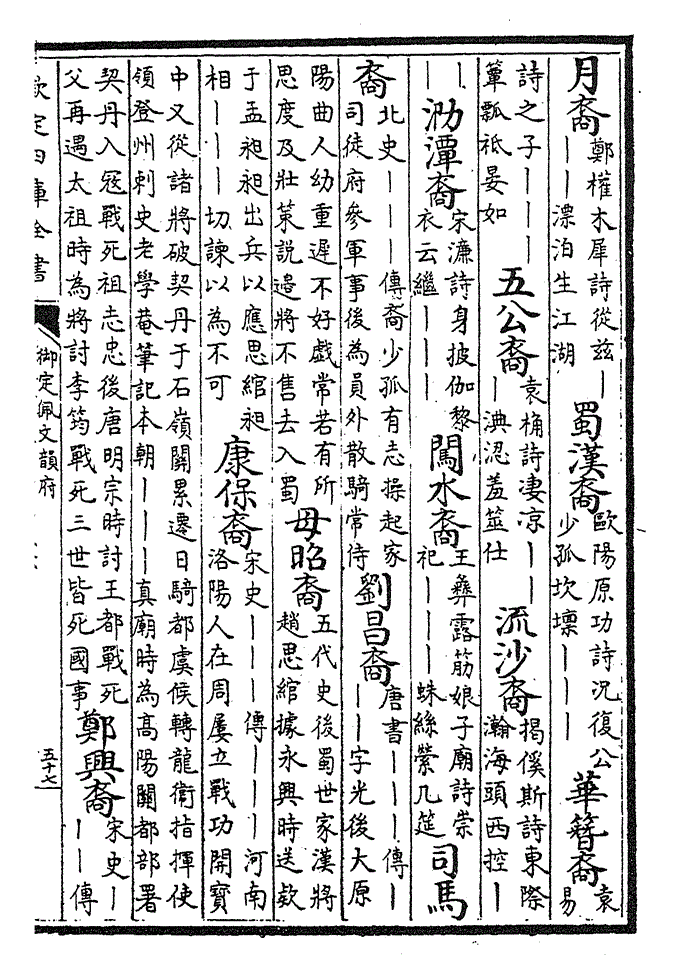 月裔鄭權木犀詩從兹—
——漂泊生江湖
蜀漢裔歐陽原功詩況復公
少孤坎壈———
華簪裔袁
易
詩之子———
簞瓢祗晏如
五公裔袁桷詩凄凉——
—淟涊羞筮仕
流沙裔揭傒斯詩東際
瀚海頭西控—
——
泐潭裔宋濂詩身披伽黎
衣云繼———
闖水裔王彝露筋娘子廟詩崇
祀———蛛絲縈几筵
司馬
裔北史———傳裔少孤有志操起家
司徒府參軍事後為員外散騎常侍
劉昌裔唐書———傳—
——字光後大原
陽曲人幼重遲不好戲常若有所
思度及壯策說邉將不售去入蜀
毋昭裔五代史後蜀世家漢將
趙思綰據永興時送欵
于孟昶昶出兵以應思綰昶
相———切諫以為不可
康保裔宋史———傳———河南
洛陽人在周屢立戰功開寶
中又從諸將破契丹于石嶺關累遷日騎都虞候轉龍衛指揮使
領登州刺史老學菴筆記本朝———真廟時為高陽關都部署
契丹入冦戰死祖志忠後唐明宗時討王都戰死
父再遇太祖時為將討李筠戰死三世皆死國事
鄭興裔宋史—
——傳
欽定四庫全書
御定佩文韻府
五十七